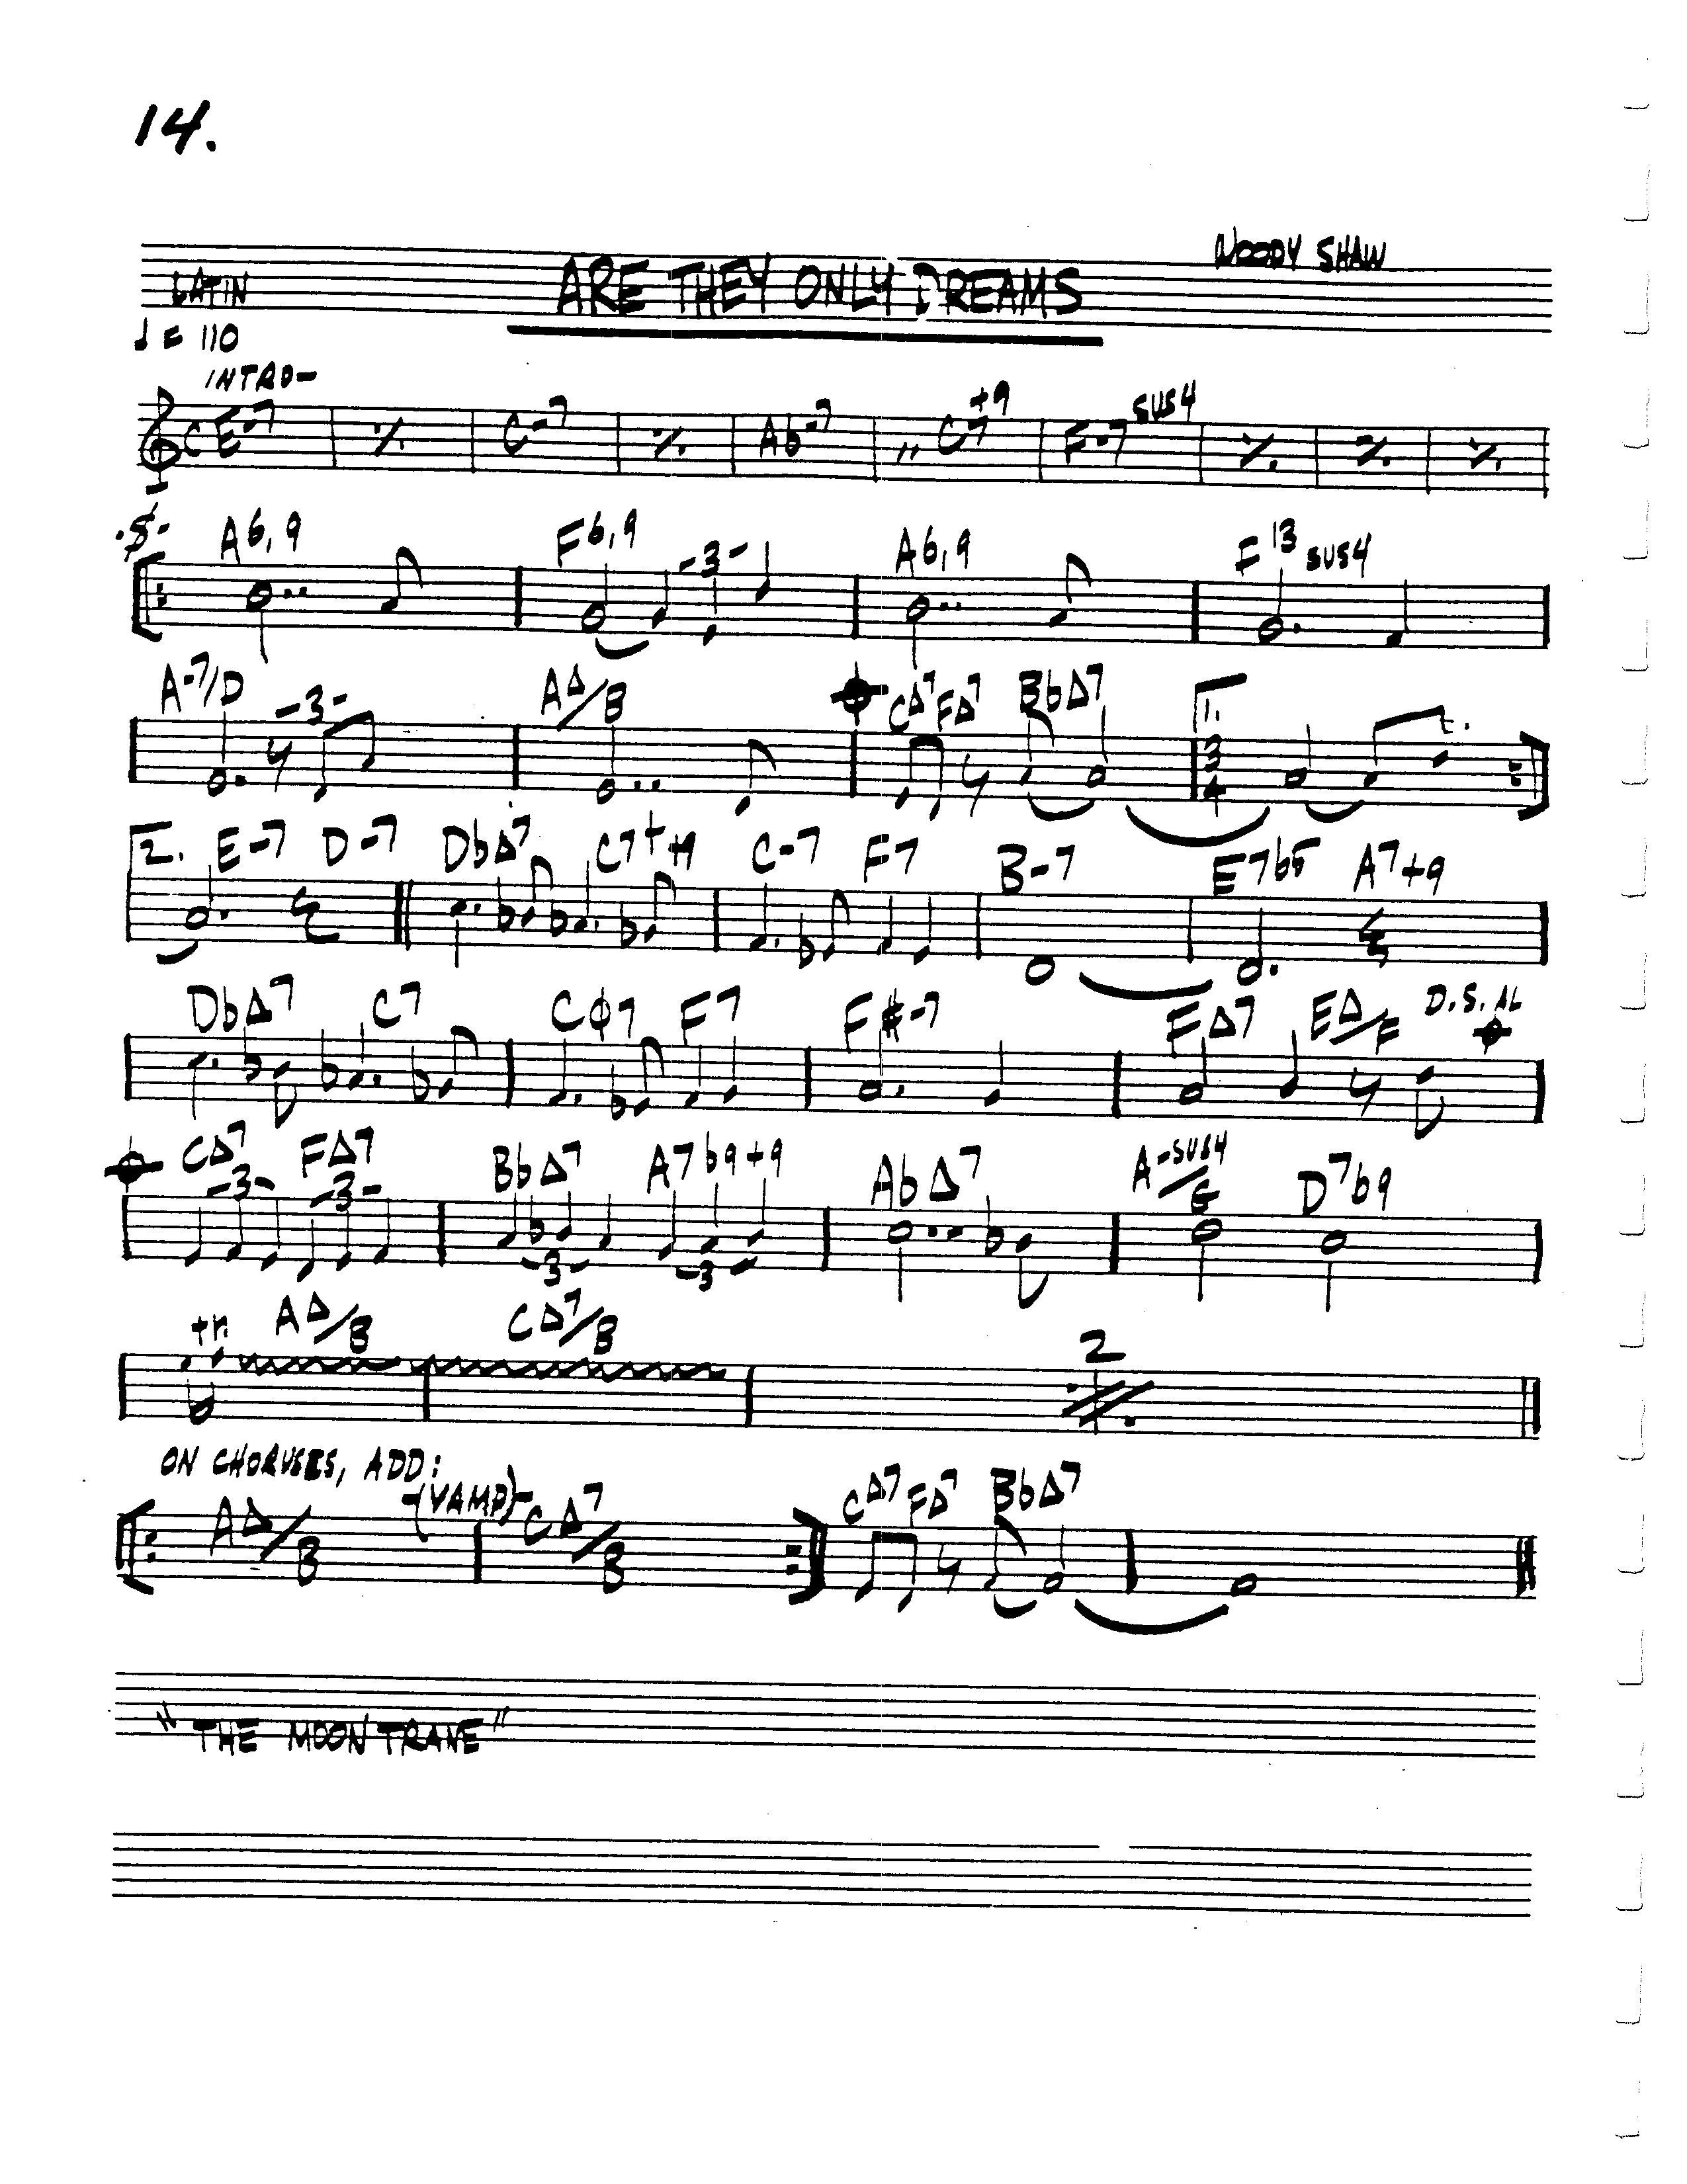 14.
WOODY SHAW
LATIN ARE THEY ONLY DREAMS
♩ = 110
INTRO-
C E-7 ٪ C-7 ٪ Ab-7 〃 C7+9 F-7 SUS4 ٪ ٪ ٪
A6,9 F6,9 -3- A6,9 F13 SUS4
A-7/D -3- A△/B C△7 F△7 Bb△7 1. 3/4
2. E-7 D-7 Db△7 C7++9 C-7 F7 B-7 E7b5 A7+9
Db△7 C7 Cφ7 F7 F#-7 F△7 E△/F D.S. AL
C△7 -3- F△7 -3- Bb△7 3 A7b9+9 3 Ab△7 A-SUS4/G D7b9
tr. A△/B C△7/B 2
ON CHORUSES, ADD:
A△/B -(VAMP)- C△7/B C△7 F△7 Bb△7
"THE MOON TRANE"